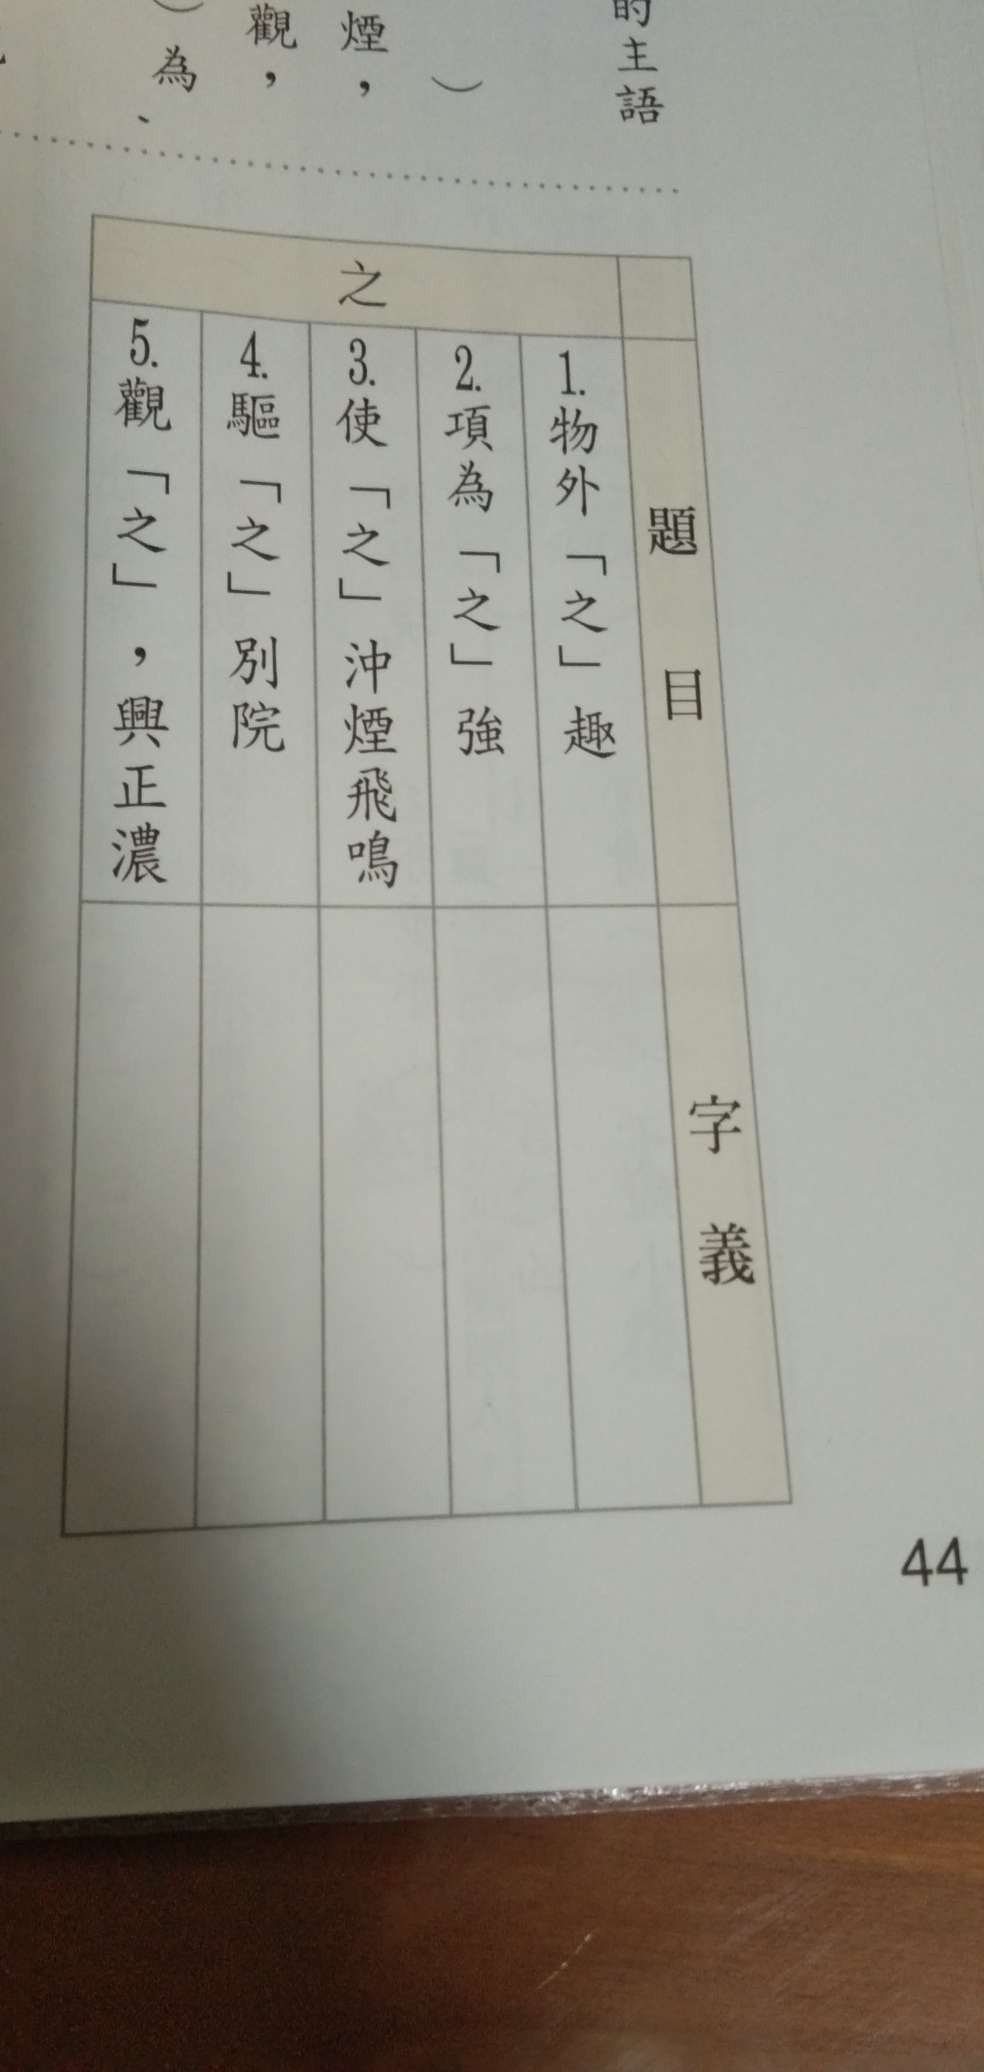 的主語
）
煙，
觀，
為、
題目
字義
之
1.物外「之」趣
2.項為「之」強
3.使「之」沖煙飛鳴
4.驅「之」別院
5.觀「之」，興正濃
44